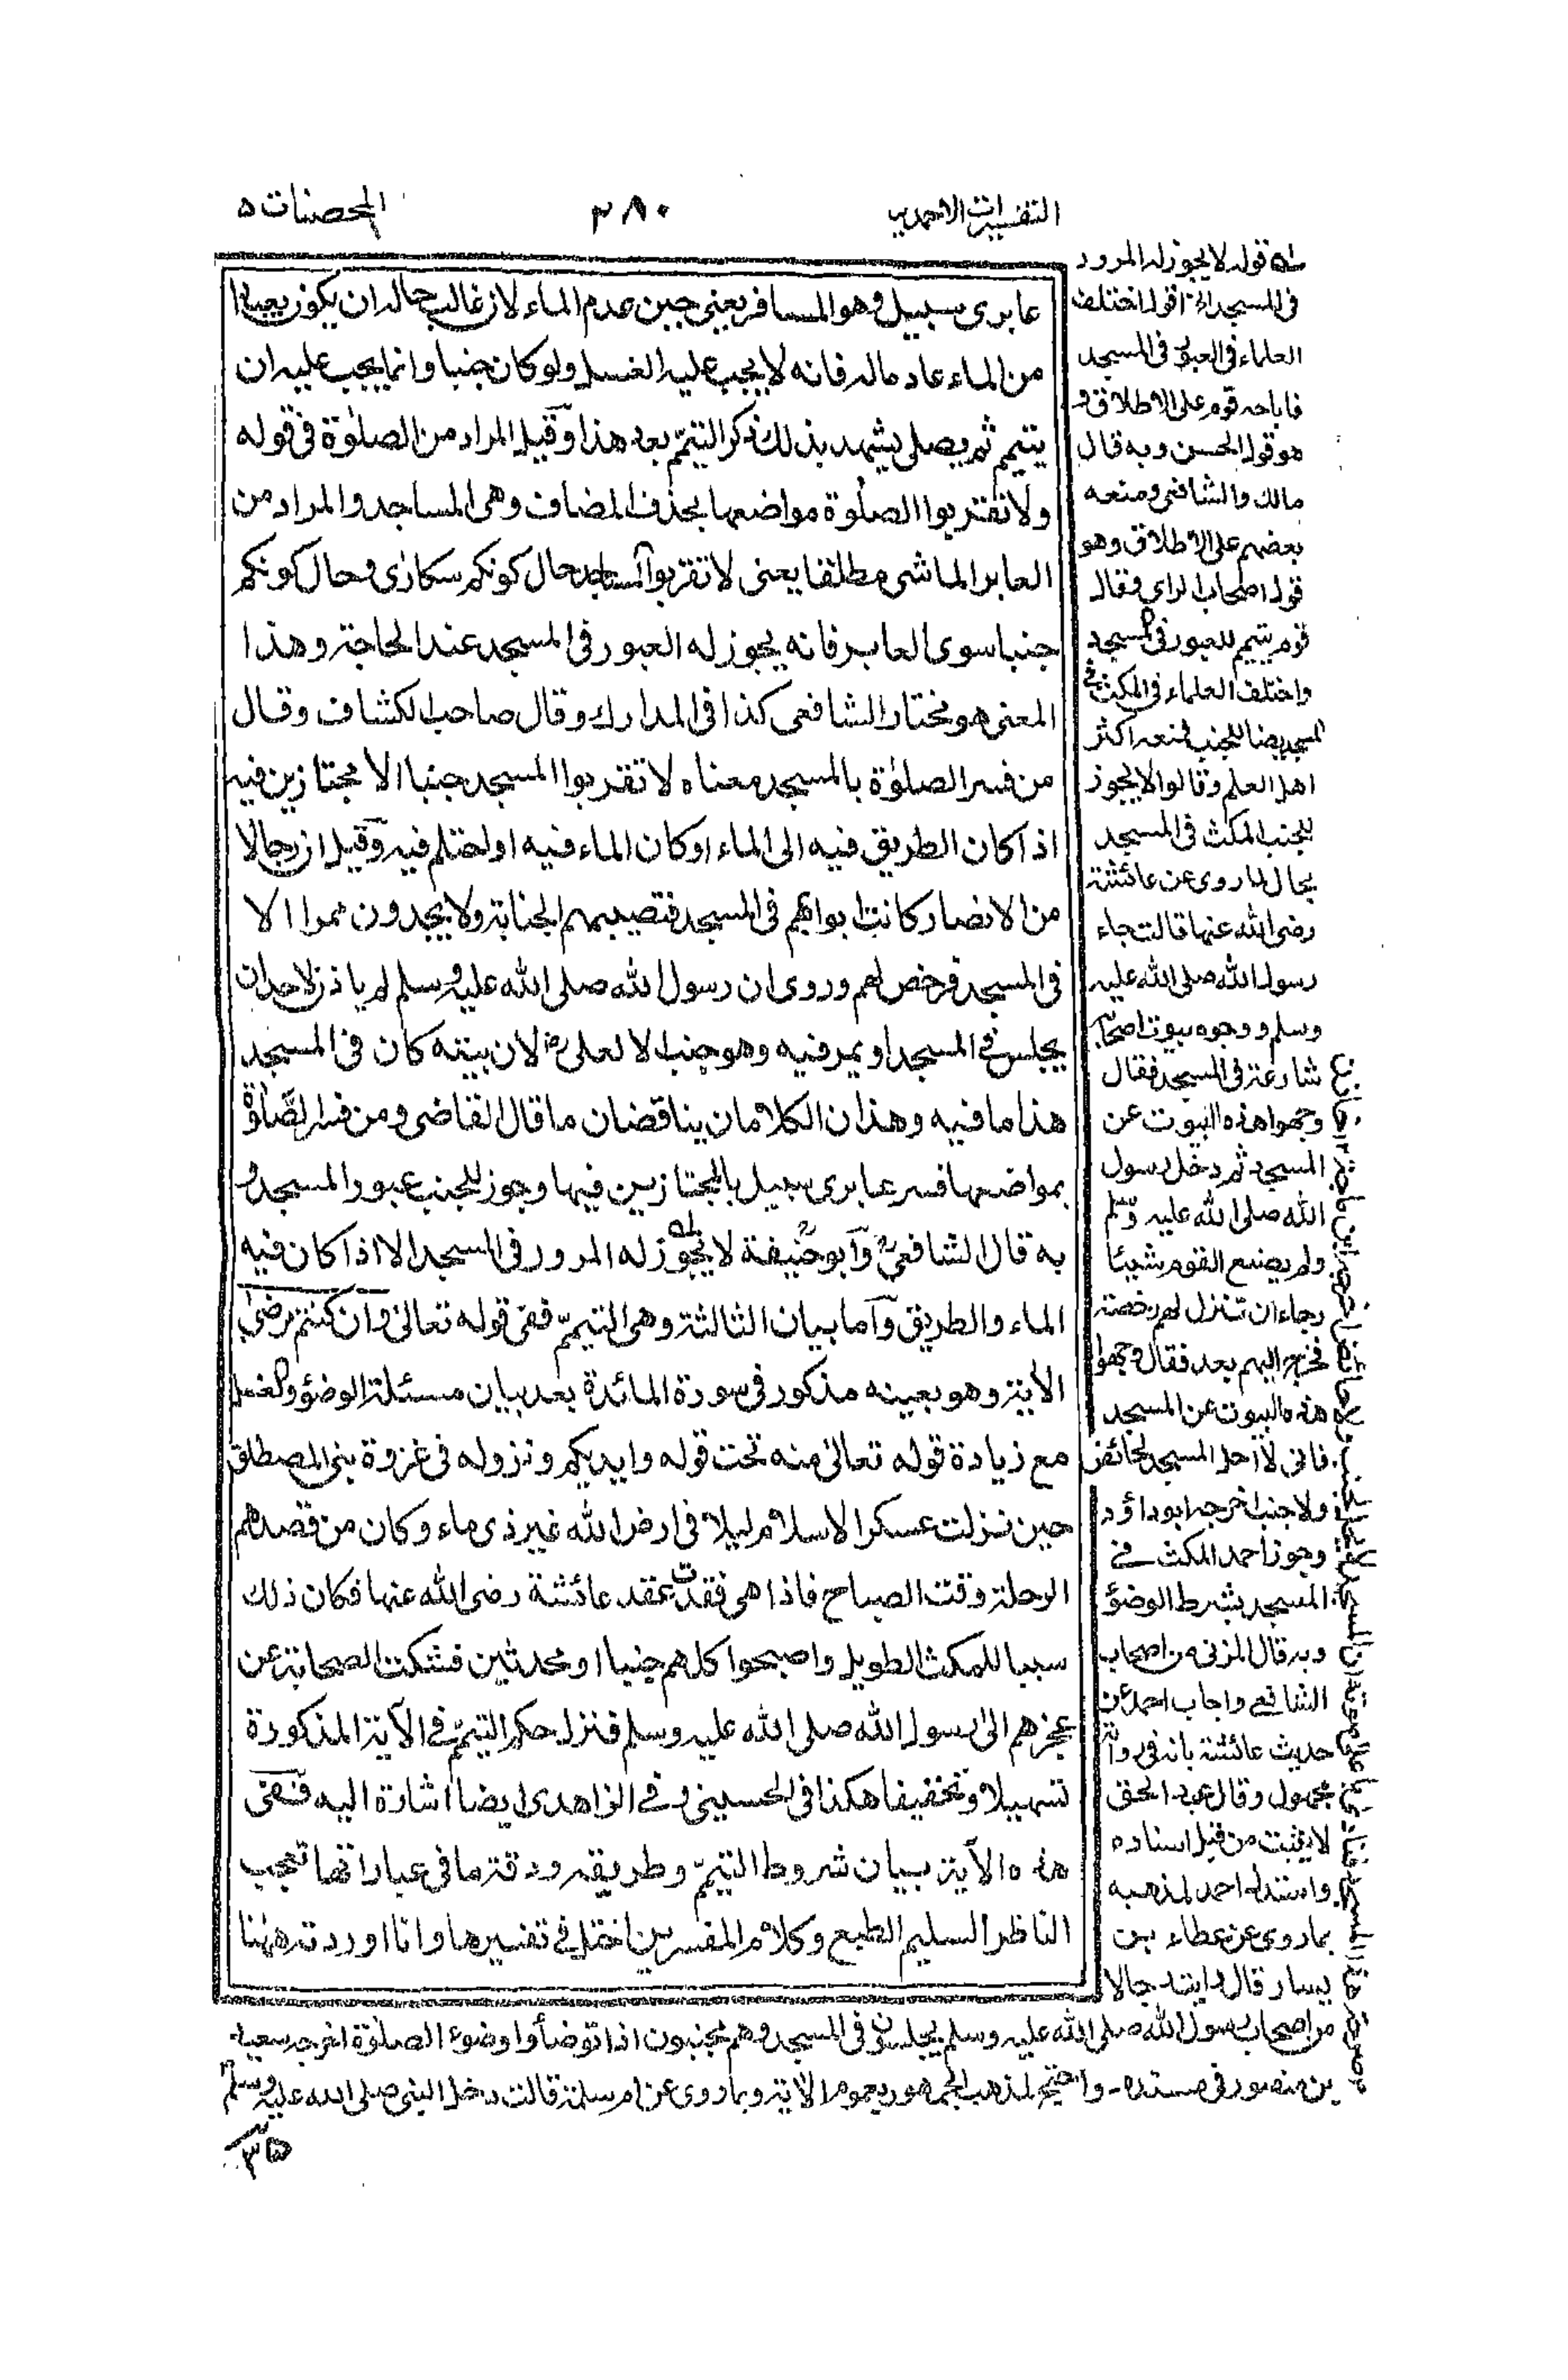 التفسيرات الاحمدية
٢٨٠
المحصنات ٥
عابرى سبيل وهو المسافر يعنى حين عدم الماء لان غالب حاله ان يكون بعيدا
من الماء عادماله فانه لا يجب عليه الغسل ولو كان جنبا وانما يجب عليه ان
يتيمم ثم يصلى يشهد بذلك ذكر التيمّم بعد هذا وقيل المراد من الصلوٰة فى قوله
ولا تقربوا الصلوٰة مواضعها بحذف المضاف وهى المساجد والمراد من
العابر الماشى مطلقا يعنى لا تقربوا المساجد حال كونكم سكارٰى وحال كونكم
جنبا سوى العابر فانه يجوز له العبور فى المسجد عند الحاجة وهذا
المعنى هو مختار الشافعى كذا فى المدارك وقال صاحب الكشاف وقال
من فسر الصلوٰة بالمسجد معناه لا تقربوا المسجد جنبا الا مجتازين فيه
اذا كان الطريق فيه الى الماء او كان الماء فيه او احتلم فيه وقيل ان رجالا
من الانصار كانت ابوابهم فى المسجد فتصيبهم الجنابة ولا يجدون ممرا الا
فى المسجد فرخص لهم وروى ان رسول الله صلى الله عليه وسلم لم ياذن لاحد ان
يجلس فى المسجد او يمر فيه وهو جنب الا لعلى رض لان بيته كان فى المسجد
هذا ما فيه وهذان الكلامان يناقضان ما قال القاضى ومن فسر الصّلوٰة
بمواضعها فسر عابرى سبيل بالمجتازين فيها وجوز للجنب عبور المسجد و
به قال الشافعىؒ وآبو حنيفةؒ لا يجوز له المرور فى المسجد الا اذا كان فيه
الماء والطريق وآما بيان الثالثة وهى التيمّم ففى قوله تعالى وان كنتم مرضىٰ
الاية وهو بعينه مذكور فى سورة المائدة بعد بيان مسئلة الوضؤ والغسل
مع زيادة قوله تعالى منه تحت قوله وايديكم ونزوله فى غزوة بنى المصطلق
حين نزلت عسكر الاسلام ليلا فى ارض الله غير ذى ماء وكان من قصدهم
الرحلة وقت الصباح فاذا هى فقدت عقد عائشة رضى الله عنها فكان ذلك
سببا للمكث الطويل واصبحوا كلهم جنبا او محدثين فشكت الصحابة عن
عجزهم الى رسول الله صلى الله عليه وسلم فنزل حكم التيمّم فى الآية المذكورة
تسهيلا وتخفيفا هكذا فى الحسينى وفى الزاهدى ايضا اشارة اليه ففى
هذه الآية بيان شروط التيمّم وطريقه ودقة ما فى عباراتها تعجب
الناظر السليم الطبع وكلام المفسرين اختل فى تفسيرها وانا اوردته ههنا
له قوله لا يجوز له المرور
فى المسجد الخ اقول اختلف
العلماء فى العبور فى المسجد
فاباحه قوم على الاطلاق و
هو قول الحسن وبه قال
مالك والشافعى ومنعه
بعضهم على الاطلاق وهو
قول اصحاب الراى وقال
قوم يتيمم للعبور فى المسجد
واختلف العلماء فى المكث فى
المسجد ايضا للجنب فمنعه اكثر
اهل العلم وقالوا لا يجوز
للجنب المكث فى المسجد
بحال لما روى عن عائشة
رضى الله عنها قالت جاء
رسول الله صلى الله عليه
وسلم ووجوه بيوت اصحابه
شارعة فى المسجد فقال
وجهوا هذه البيوت عن
المسجد ثم دخل رسول
الله صلى الله عليه وسّلم
ولم يصنع القوم شيئا
رجاء ان تنزل لهم رخصة
فخرج اليهم بعد فقال وجهوا
هذه البيوت عن المسجد
فانى لا احل المسجد لحائض
ولا جنب اخرجه ابوداؤد
وجوز احمد المكث فى
المسجد بشرط الوضؤ
وبه قال المزنى من اصحاب
الشافعى واجاب احمد عن
حديث عائشة بانه فى رواته
مجهول وقال عبد الحق
لا يثبت من قبل اسناده
واستدل احمد لمذهبه
بما روى عن عطاء بن
يسار قال رايت رجالا
من اصحاب رسول الله صلى الله عليه وسلم يجلسون فى المسجد وهم مجنبون اذا توضأوا وضوء الصلوٰة اخرجه سعيد
بن منصور فى مسنده۔ واحتج لمذهب الجمهور بعموم الاية وبما روى عن ام سلمة قالت دخل النبى صلى الله عليه وسلم